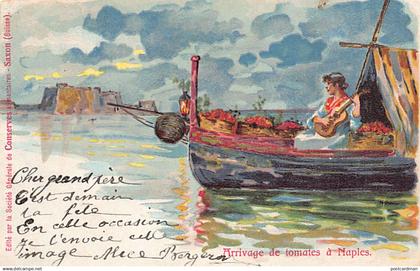 Edité par la Société Générale de Conserves Alimentaires - Saxon (Suisse).
Cher grand père
C'est demain
ta fête
En cette occasion
je t'envoie cette
image Alice Bergern
Arrivage de tomates à Naples.